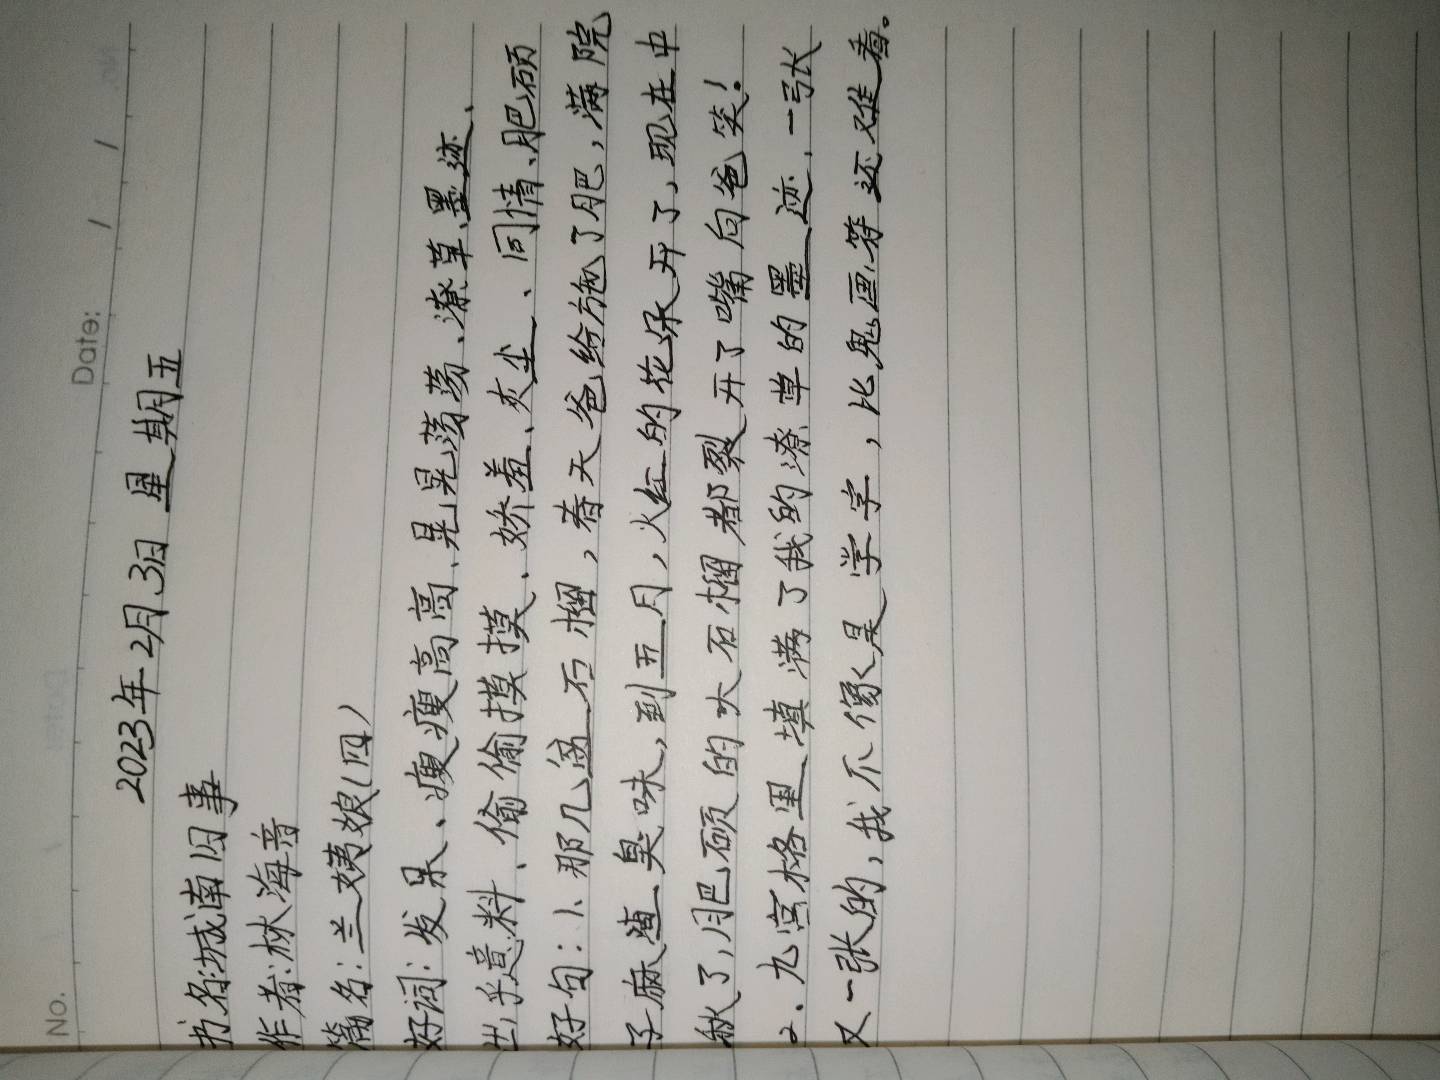 No.
Date: / /
2023年2月3日 星期五
书名:城南旧事
作者:林海音
篇名:兰姨娘(四)
好词:发呆、瘦瘦高高、晃晃荡荡、潦草、墨迹、
出乎意料、偷偷摸摸、娇羞、灰尘、同情、肥硕
好句:1、那几盆石榴,春天爸给施了肥,满院
子麻渣臭味,到五月,火红的花朵开了,现在中
秋了,肥硕的大石榴都裂开了嘴向爸笑!
2.九宫格里填满了我的潦草的墨迹,一张
又一张的,我不像是学字,比鬼画符还难看。